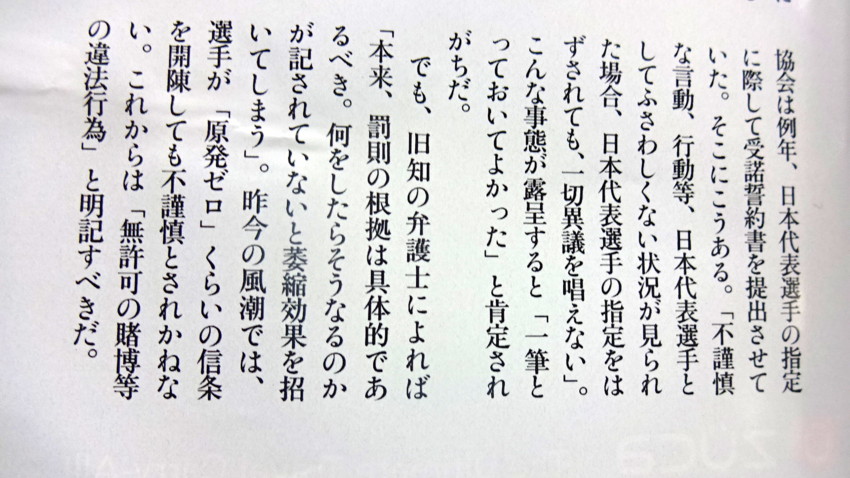 協会は例年、日本代表選手の指定
に際して受諾誓約書を提出させて
いた。そこにこうある。「不謹慎
な言動、行動等、日本代表選手と
してふさわしくない状況が見られ
た場合、日本代表選手の指定をは
ずされても、一切異議を唱えない」。
こんな事態が露呈すると「一筆と
っておいてよかった」と肯定され
がちだ。
でも、旧知の弁護士によれば
「本来、罰則の根拠は具体的であ
るべき。何をしたらそうなるのか
が記されていないと萎縮効果を招
いてしまう」。昨今の風潮では、
選手が「原発ゼロ」くらいの信条
を開陳しても不謹慎とされかねな
い。これからは「無許可の賭博等
の違法行為」と明記すべきだ。